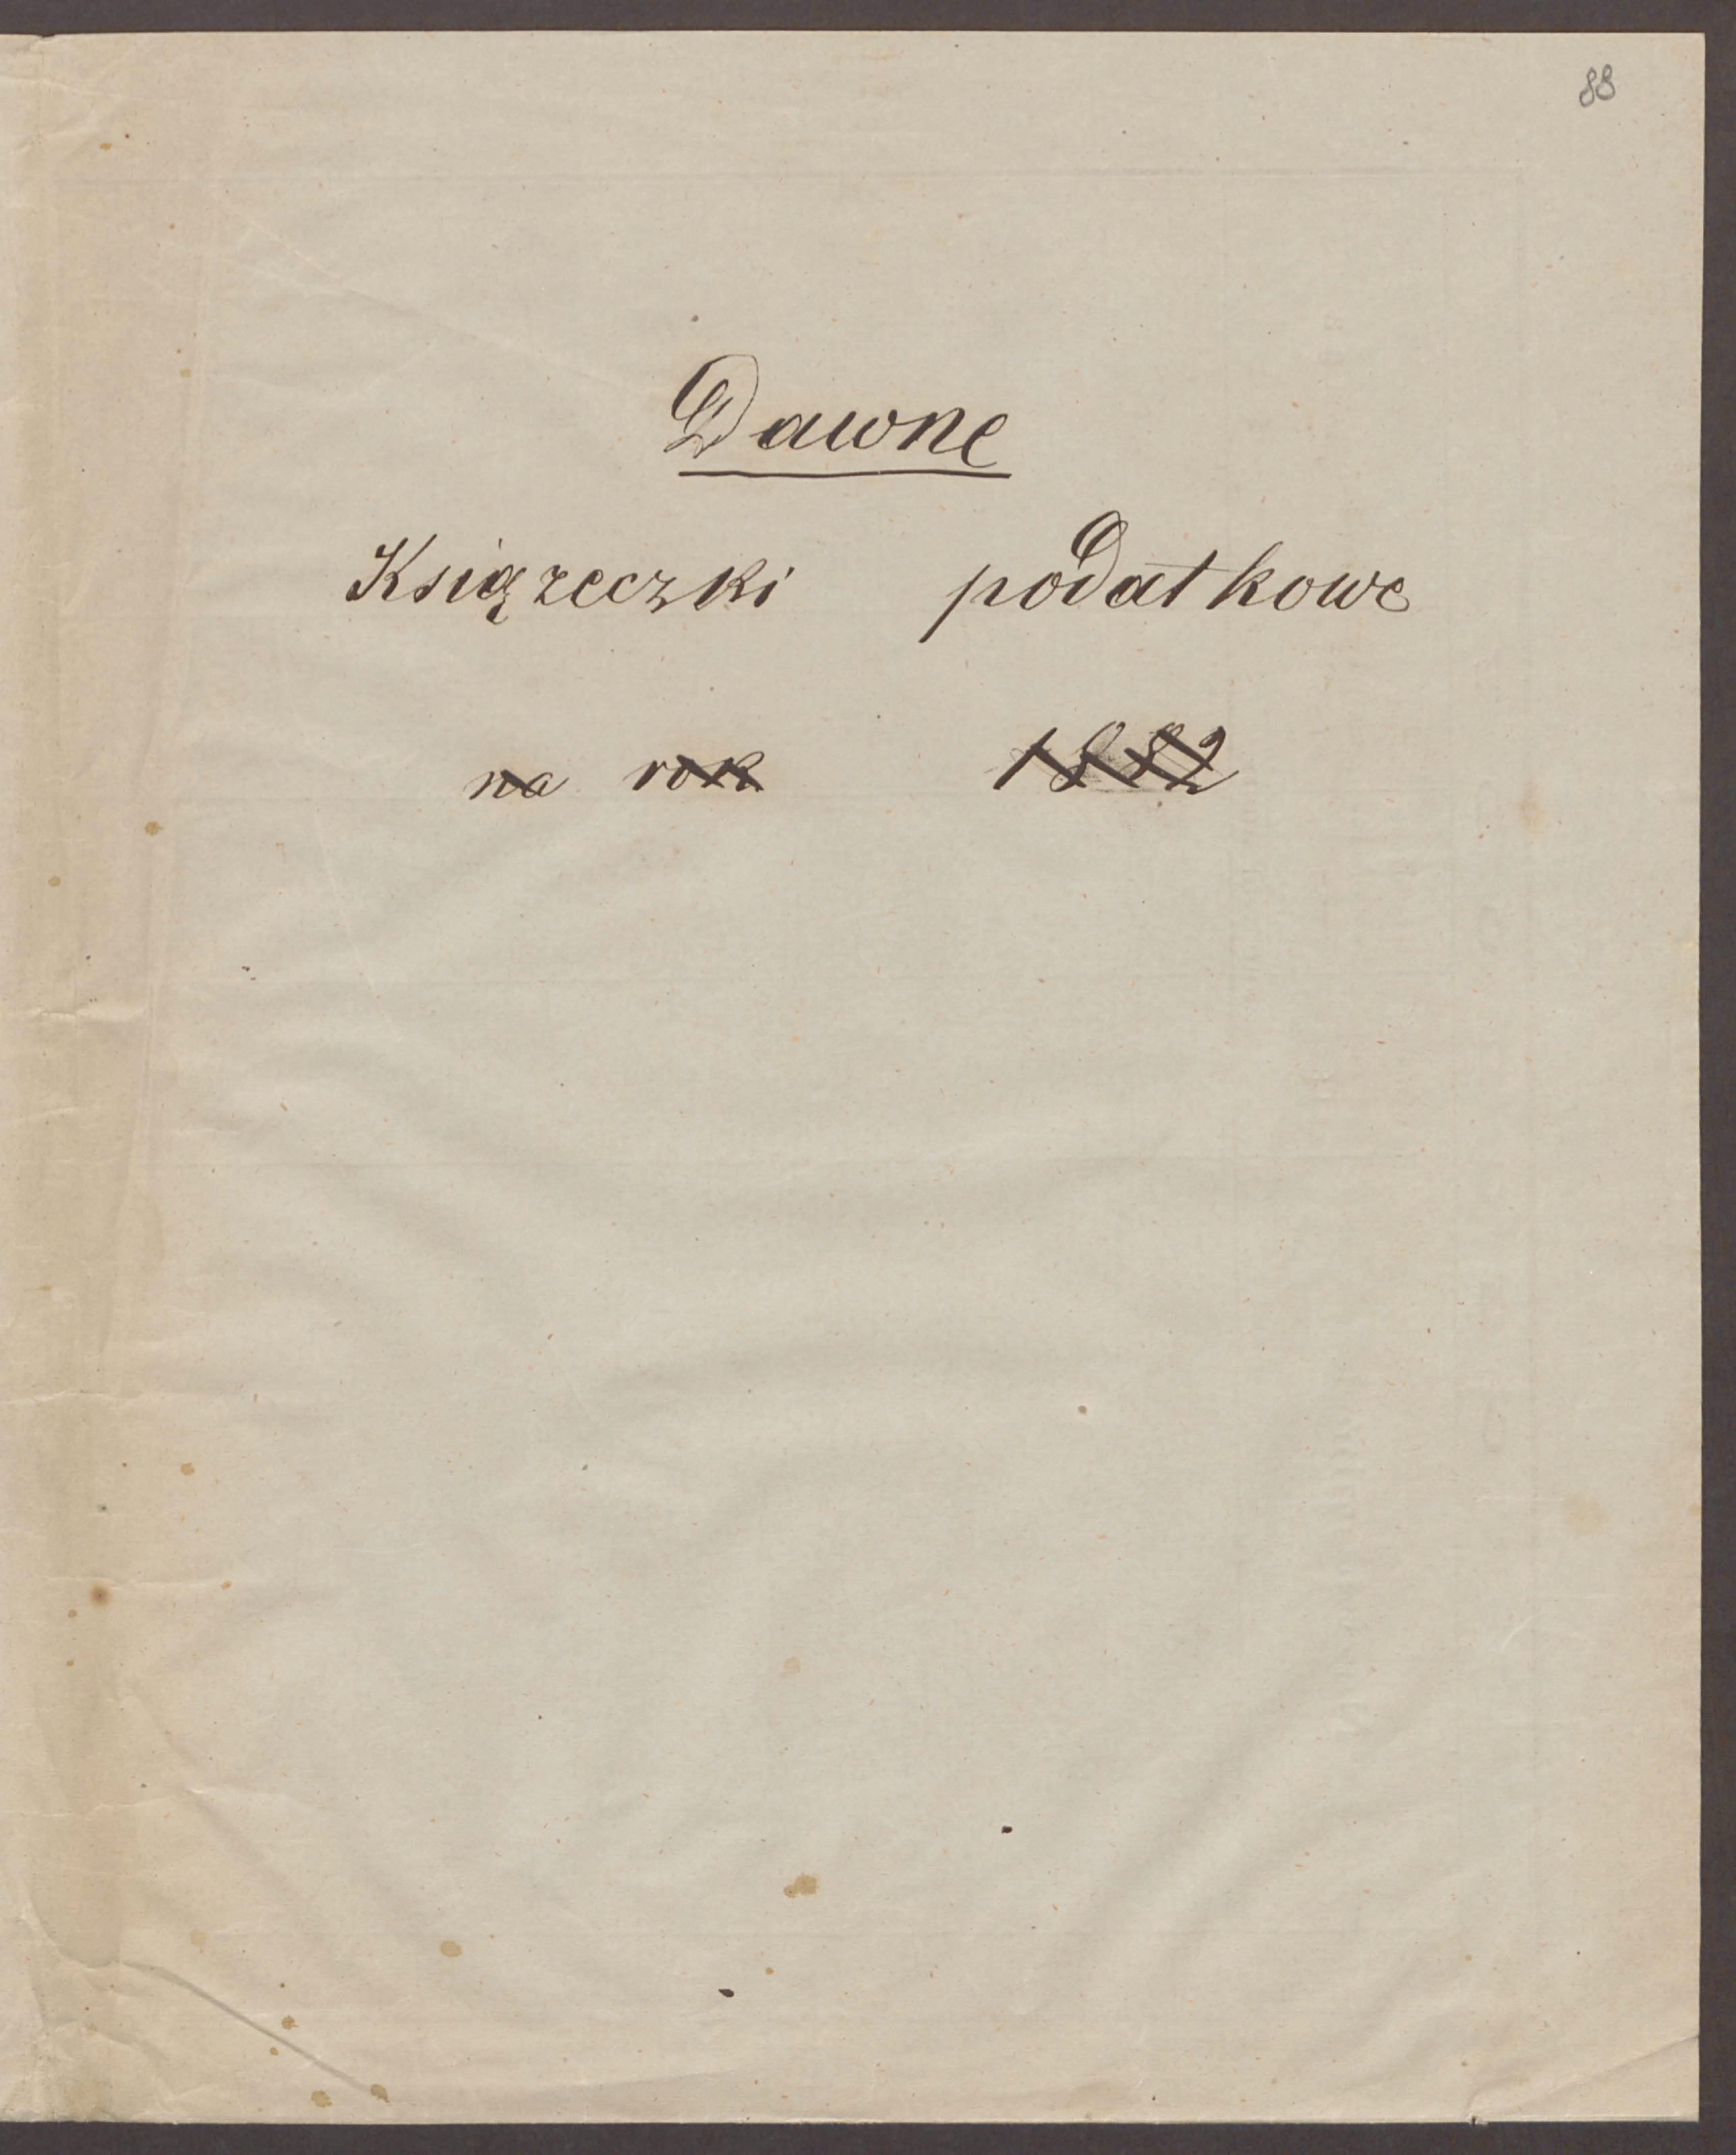 88
Dawne
Książeczki podatkowe
na rok 1882